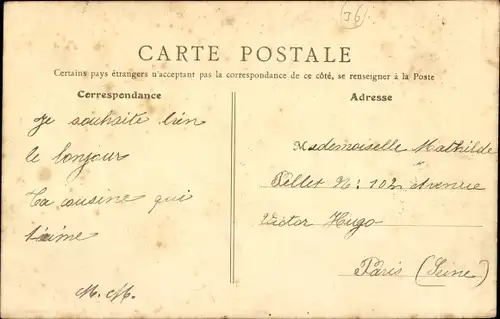 36
CARTE POSTALE
Certains pays étrangers n'acceptant pas la correspondance de ce côté, se renseigner à la Poste
Correspondance
Je souhaite bien
le bonjour
Ta cousine qui
t'aime
M. M.
Adresse
Mademoiselle Mathilde
Pellet N: 102 Avenue
Victor Hugo
Paris (Seine)